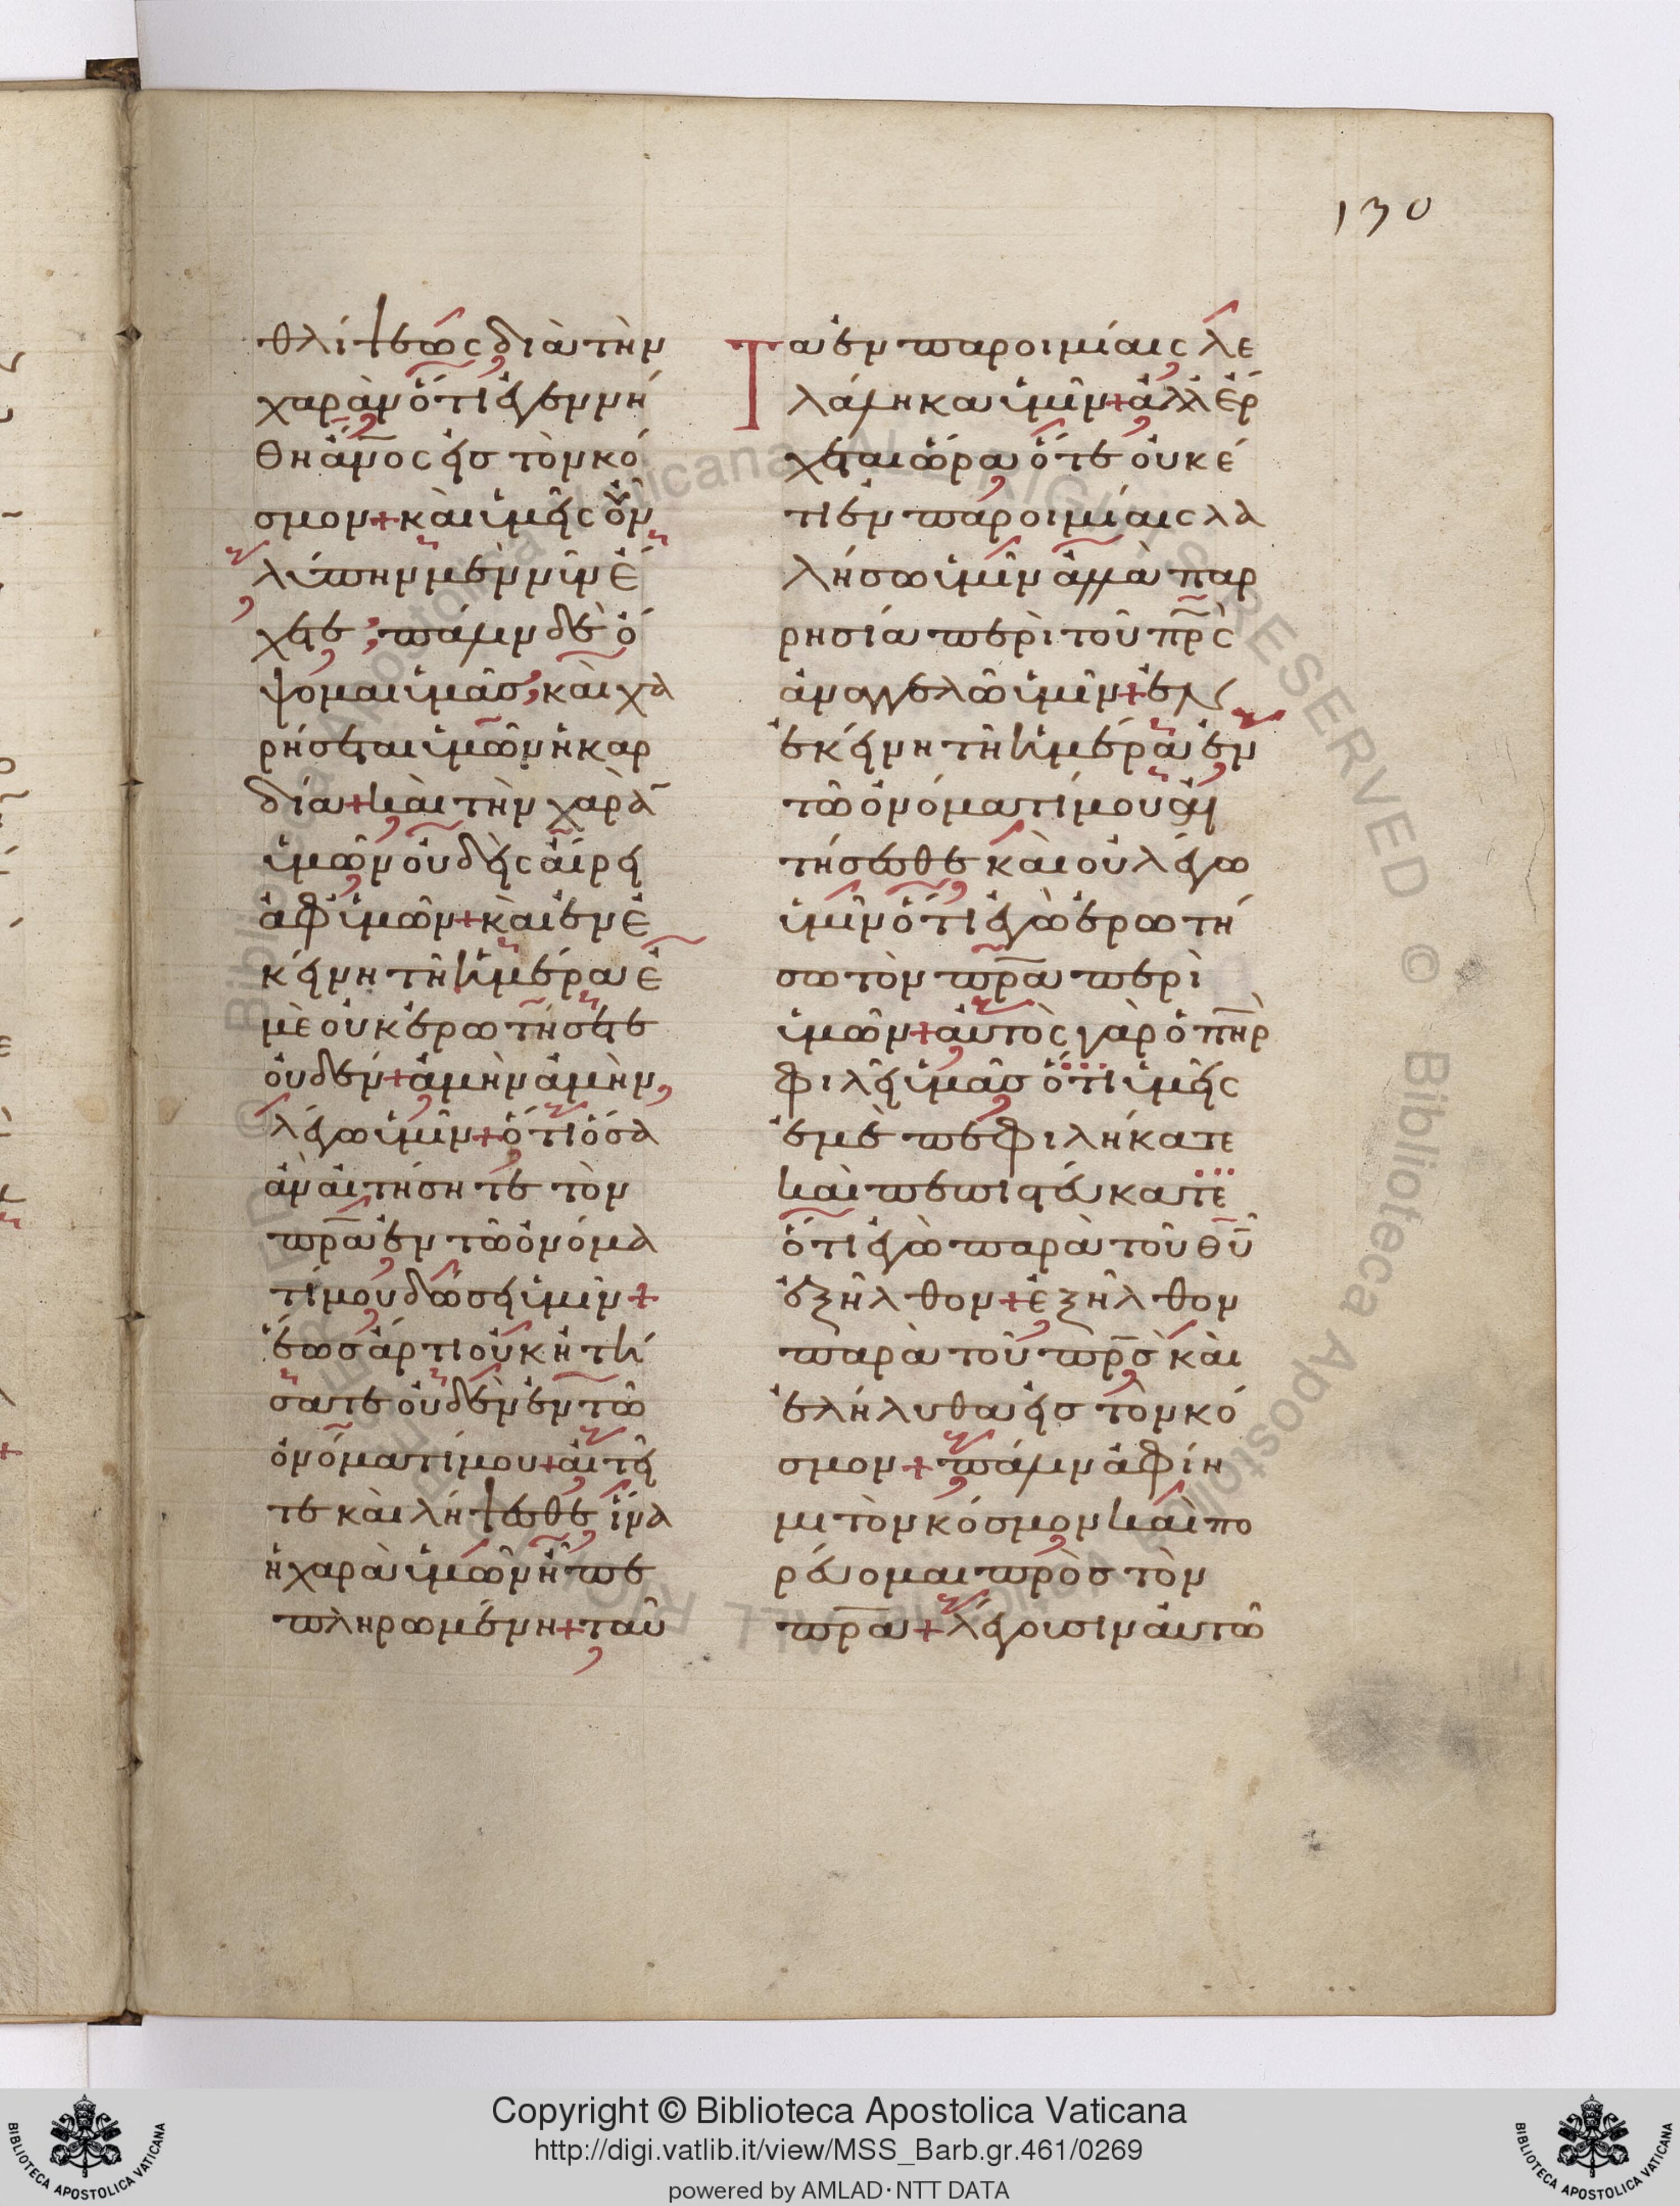 130
θλίψεως διὰ τὴν
χαρὰν ὅτι ἐγεννή
θη ἄν̅ο̅ς εἰς τὸν κό
σμον + καὶ ὑμεῖς οὖν
λύπην μὲν νῦν ἔ
χετε ; πάλιν δὲ ὄ
ψομαι ὑμᾶς, καὶ χα
ρήσεται ὑμῶν ἡ καρ
δία + καὶ τὴν χαρὰ̅
ὑμῶν οὐδεὶς αἴρει
ἀφ ὑμῶν + καὶ ἐν ἐ
κείνη τῆ ἡμέρα ἐ
μὲ οὐκ ἐρωτήσετε
οὐδέν + ἀμὴν ἀμὴν,
λέγω ὑμῖν + ὅτι ὅσα
ἂν αἰτήσητε τὸν
π̅ρ̅α ἐν τῶ ὀνόμα
τί μου δώσει ὑμῖν +
ἕως ἄρτι οὐκ ἠτή
σατε οὐδὲν ἐν τῶ
ὀνόματί μου + αἰτεῖ
τε καὶ λήψεσθε ἵνα
ἡ χαρὰ ὑμῶν ἦ πε
πληρωμένη + ταῦ
Τα ἐν παροιμίαις λε
λάληκα ὑμῖν + ἀλλ ἔρ
χεται ὥρα ὅτε οὐκέ
τι ἐν παροιμίαις λα
λήσω ὑμῖν ἀλλὰ παρ
ρησία περὶ τοῦ π̅ρ̅ς
ἀναγγελῶ ὑμῖν + ἐν
ἐκείνη τῆ ἡμέρα ἐν
τῶ ὀνόματί μου αἰ
τήσεσθε καὶ οὐ λέγω
ὑμῖν ὅτι ἐγὼ ἐρωτή
σω τὸν π̅ρ̅α περὶ
ὑμῶν + αὐτὸς γὰρ ὁ π̅η̅ρ
φιλεῖ ὑμᾶς ὅτι ὑμεῖς
ἐμὲ πεφιλήκατε
καὶ πεπιστεύκατε
ὅτι ἐγὼ παρὰ τοῦ θ̅υ̅
ἐξῆλθον + ἐξῆλθον
παρὰ τοῦ π̅ρ̅ς καὶ
ἐλήλυθα εἰς τὸν κό
σμον + πάλιν ἀφίη
μι τὸν κόσμον καὶ πο
ρεύομαι πρὸς τὸν
π̅ρ̅α + λέγουσιν αὐτῶ
© Biblioteca Apostolica Vaticana ALL RIGHTS RESERVED © Biblioteca Apostolica Vaticana ALL RIGHTS RESERVED
Copyright © Biblioteca Apostolica Vaticana
http://digi.vatlib.it/view/MSS_Barb.gr.461/0269
powered by AMLAD·NTT DATA
BIBLIOTECA APOSTOLICA VATICANA
BIBLIOTECA APOSTOLICA VATICANA